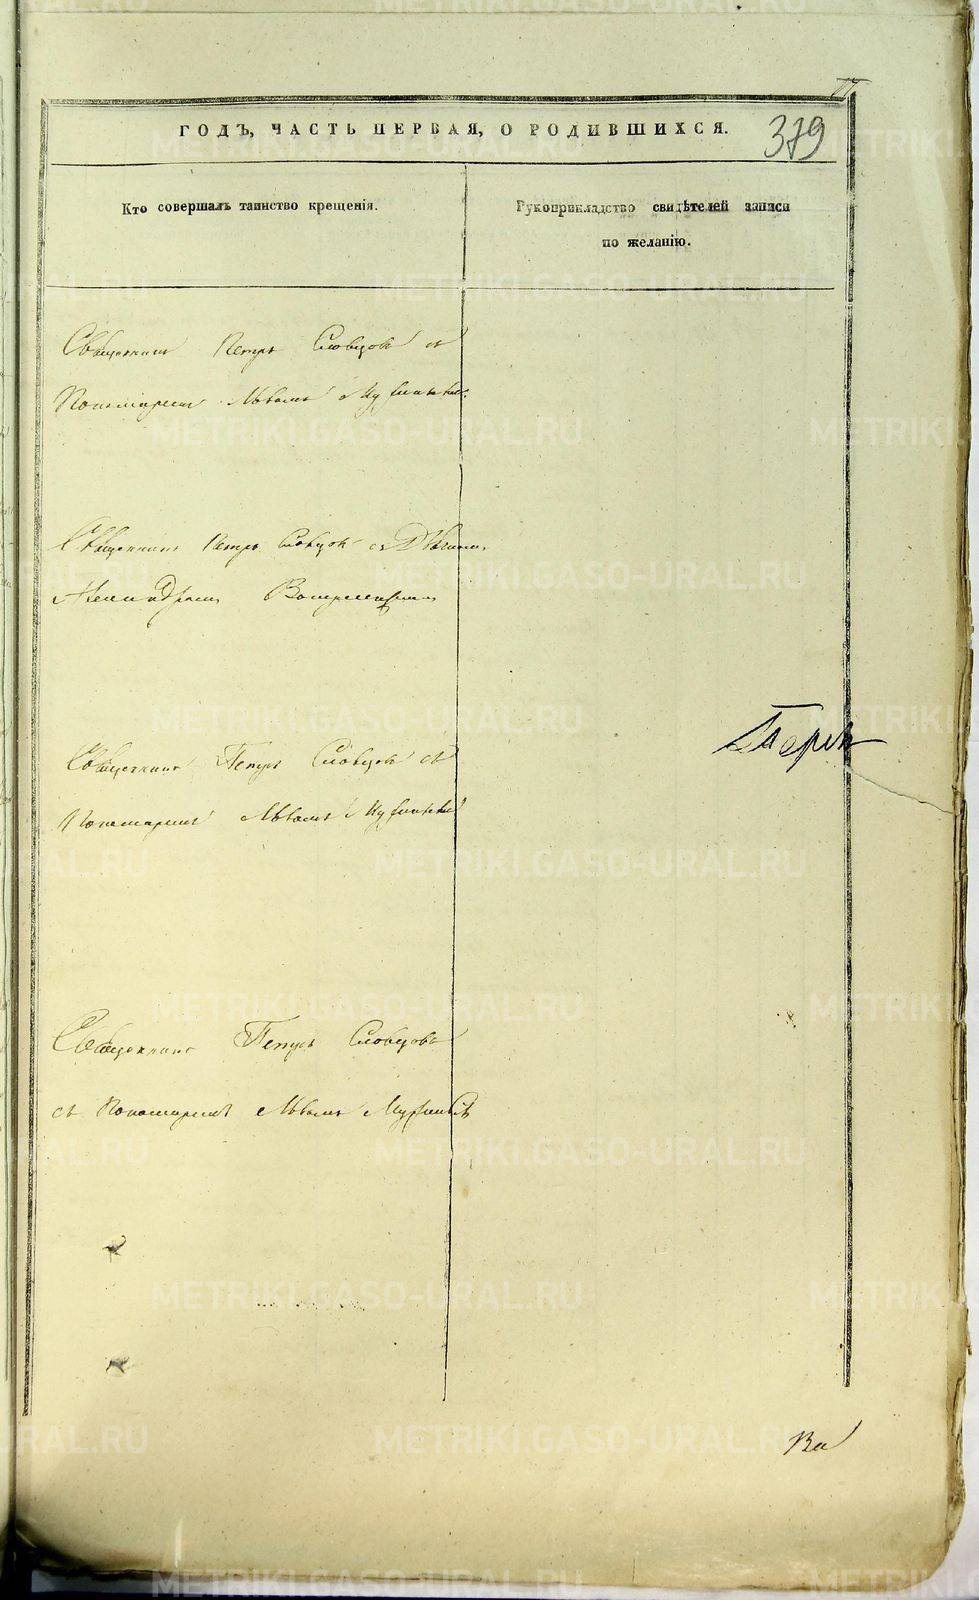 ГОДЪ, ЧАСТЬ ПЕРВАЯ, О РОДИВШИХСЯ.
379
Кто совершалъ таинство крещенія.
Рукоприкладство свидѣтелей записи
по желанію.
Священникъ Петръ Словцовъ съ
Пономаремъ Львомъ
Священникъ Петръ Словцовъ съ Дьячкомъ
Александромъ
Священникъ Петръ Словцовъ съ
Пономаремъ Львомъ
Священникъ Петръ Словцовъ
съ Пономаремъ Львомъ
METRIKI.GASO-URAL.RU